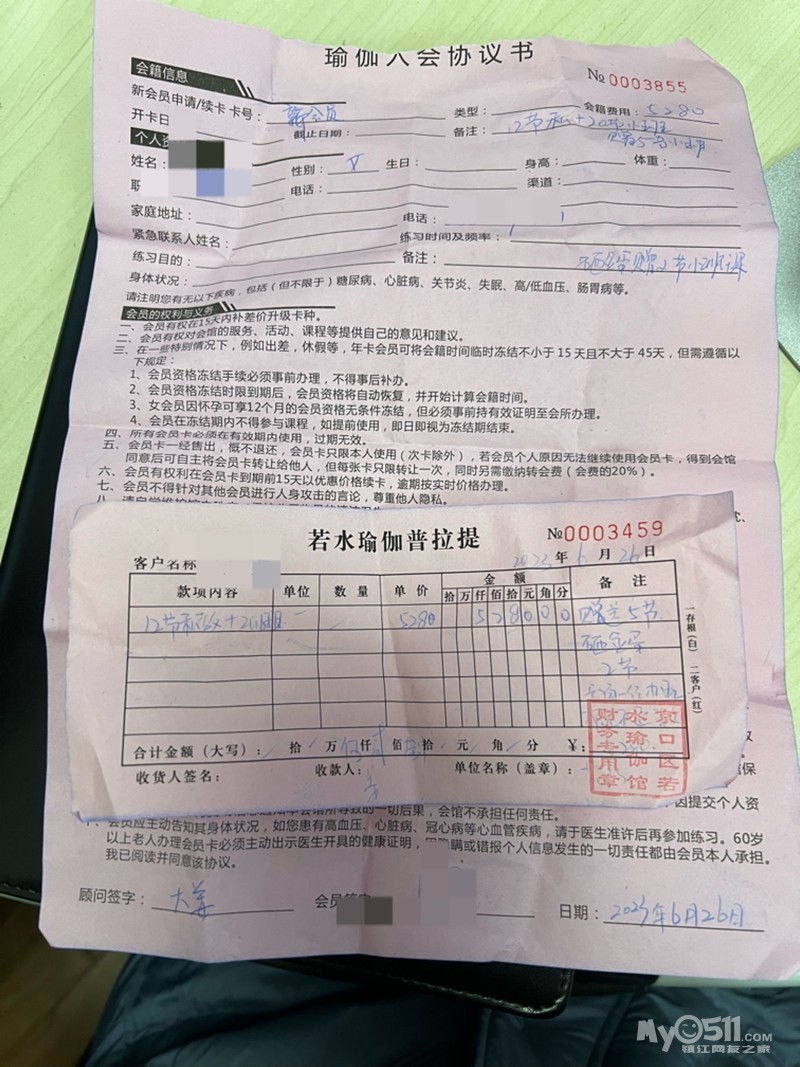 瑜伽入会协议书
№ 0003855
会籍信息
新会员申请/续卡 卡号：新会员 类型： 会籍费用：5280
开卡日 截止日期： 备注：12节私+20节小班
赠5节小班
个人资
姓名： 性别： 生日： 身高： 体重：
电话： 渠道：
家庭地址： 电话：
紧急联系人姓名： 练习时间及频率：
练习目的： 备注：晒圈赠2节小班课
身体状况： 心脏病、关节炎、失眠、高/低血压、肠胃病等。
请注明您有无以下疾病，包括（但不限于）糖尿病、
会员的权利与义务
一、会员有权在15天内补差价升级卡种。
二、会员有权对会馆的服务、活动、课程等提供自己的意见和建议。
三、在一些特别情况下，例如出差，休假等，年卡会员可将会籍时间临时冻结不小于 15 天且不大于 45天，但需遵循以
下规定：
1、会员资格冻结手续必须事前办理，不得事后补办。
2、会员资格冻结时限到期后，会员资格将自动恢复，并开始计算会籍时间。
3、女会员因怀孕可享12个月的会员资格无条件冻结，但必须事前持有效证明至会所办理。
4、会员在冻结期内不得参与课程，如提前使用，即日即视为冻结期结束。
四、所有会员卡必须在有效期内使用，过期无效。
五、会员卡一经售出，概不退还，会员卡只限本人使用（次卡除外），若会员个人原因无法继续使用会员卡，得到会馆
同意后可自主将会员卡转让给他人，但每张卡只限转让一次，同时另需缴纳转会费（会费的20%）。
六、会员有权利在会员卡到期前15天以优惠价格续卡，逾期按实时价格办理。
七、会员不得针对其他会员进行人身攻击的言论，尊重他人隐私。
若水瑜伽普拉提
№0003459
客户名称 2023 年 6 月 26 日
款项内容 单位 数量 单价 金额 备注
拾 万 仟 佰 拾 元 角 分
12节私教+20小班 5280 528000 赠送5节
2节
一存根（白） 二客户（红）
合计金额（大写）： 拾 万 仟 佰 拾 元 角 分 ￥：
收货人签名： 收款人： 单位名称（盖章）：
京口区若水瑜伽馆
财务专用章
所导致的一切后果，会馆不承担任何责任。
因提交个人资
会员应主动告知其身体状况，如您患有高血压、心脏病、冠心病等心血管疾病，请于医生准许后再参加练习。60岁
以上老人办理会员卡必须主动出示医生开具的健康证明，因隐瞒或错报个人信息发生的一切责任都由会员本人承担。
我已阅读并同意该协议。
顾问签字： 会员签字 日期：2023年6月26日
My0511.COM
镇江网友之家